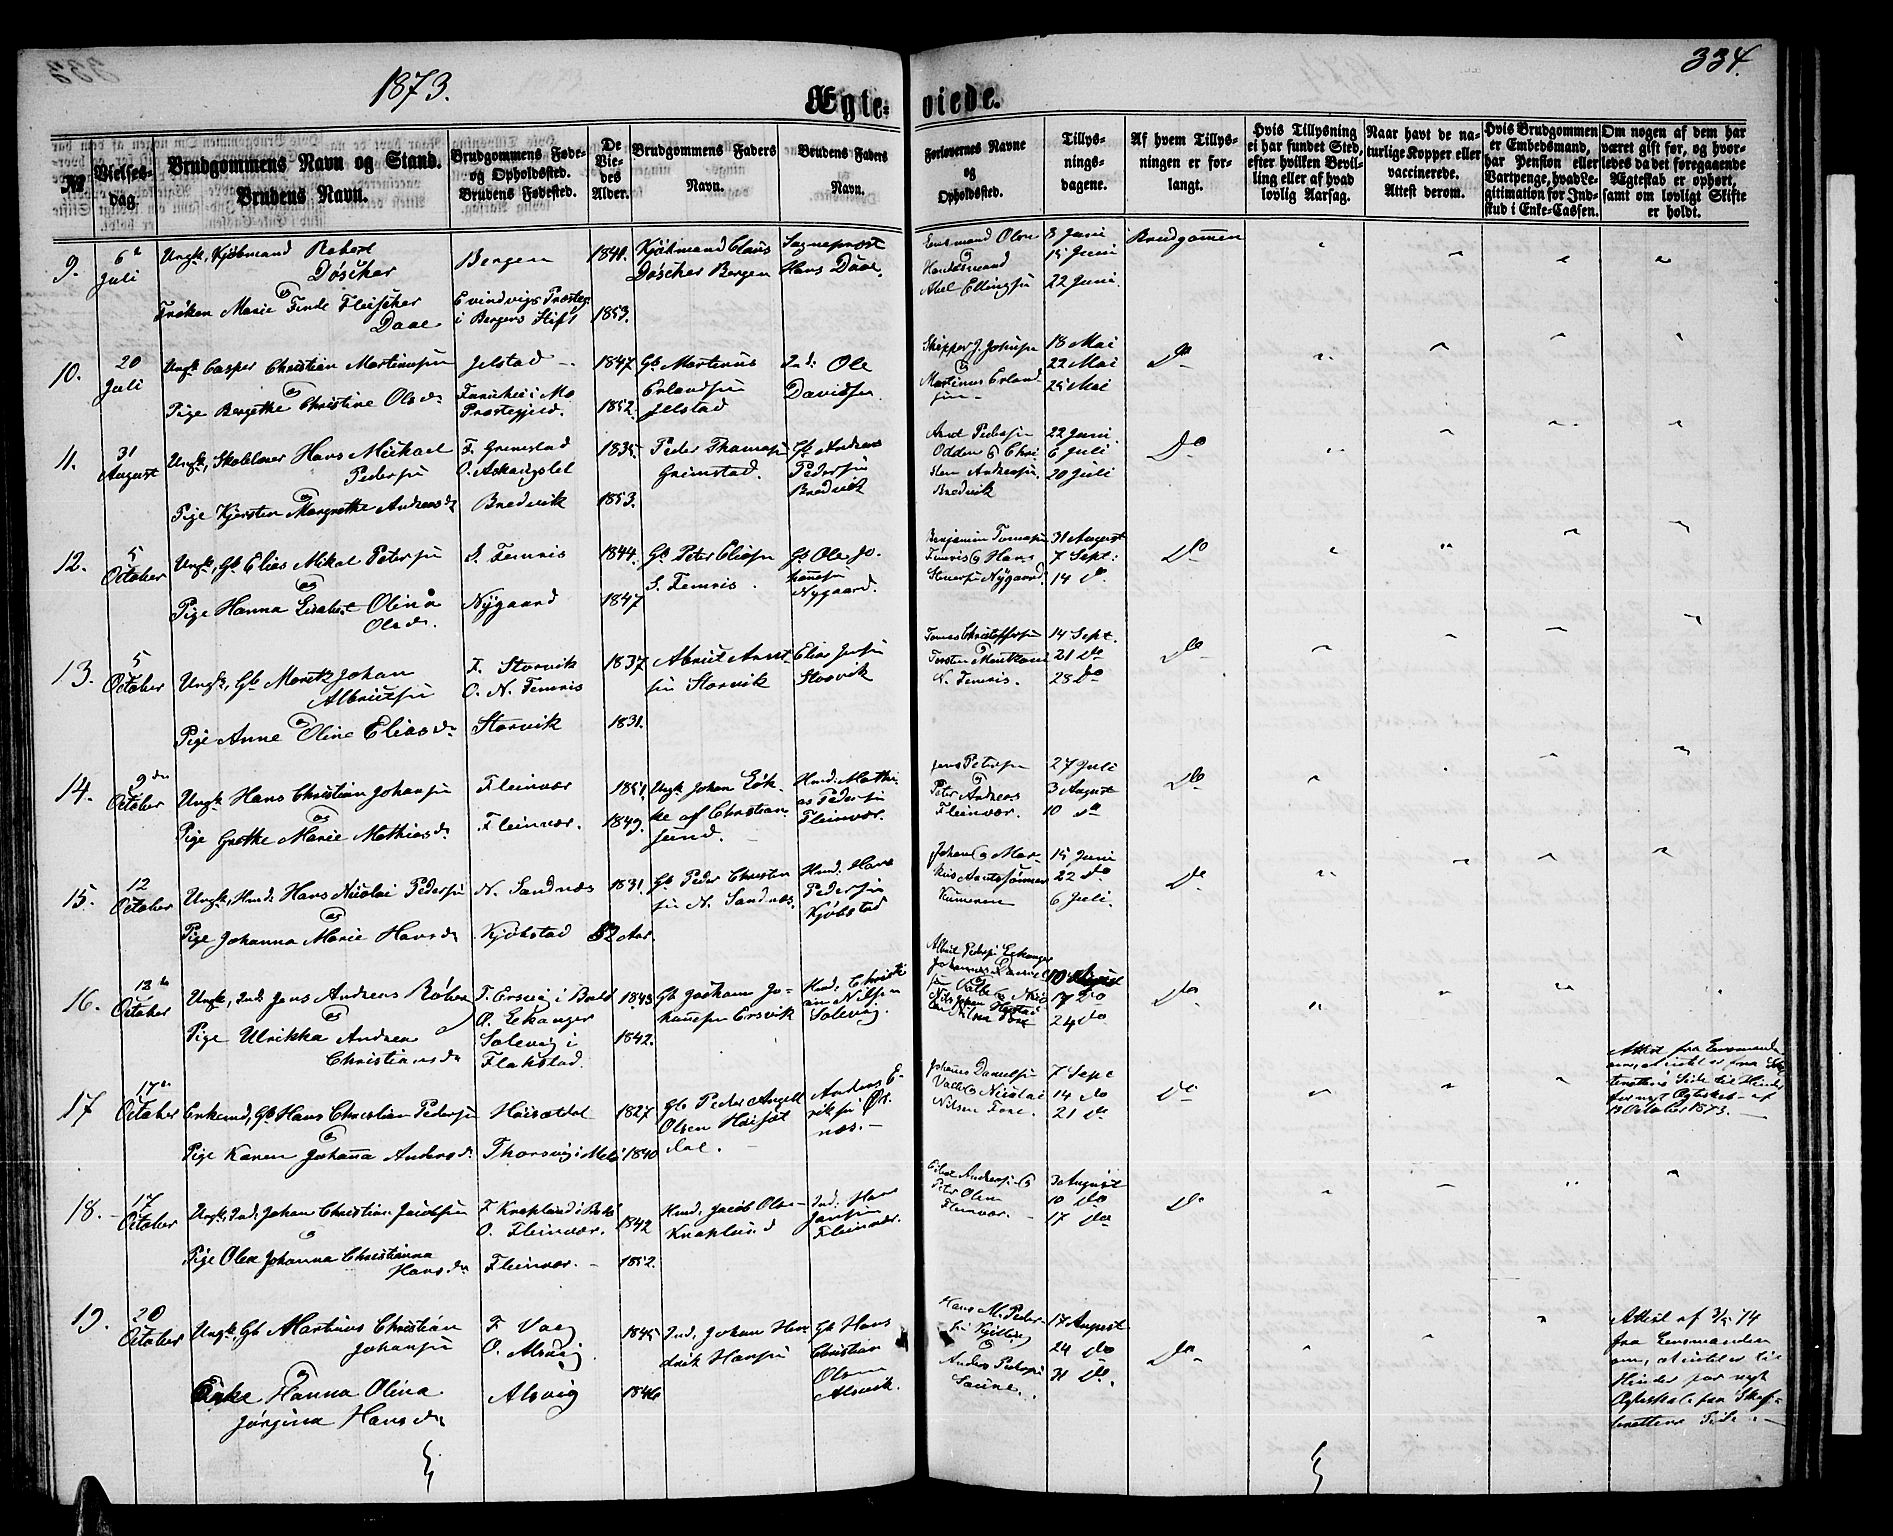 1873.
334.
Ægteviede.
№
Vielses-dag.
Brudgommens Navn og Stand. Brudens Navn.
Brudgommens Føde- og Opholdssted. Brudens Fødested.
De Viedes Alder.
Brudgommens Faders Navn.
Brudens Faders Navn.
Forlovernes Navne og Opholdssted.
Tillysningsdagene.
Af hvem Tillysningen er forlangt.
Hvis Tillysning ei har fundet Sted, efter hvilken Bevilling eller af hvad lovlig Aarsag.
Naar havt de naturlige Kopper eller vaccinerede. Attest derom.
Hvis Brudgommen er Embedsmand, har Pension eller Vartpenge, hvad Legitimation for Indskud i Enke-Cassen.
Om nogen af dem har været gift før, og hvorledes da det foregaaende Ægteskab er ophørt, samt om lovligt Skifte er holdt.
9. 6te Juli
Ungk, Kjøbmand Robert Döscher
og
Frøken Marie Finde Fleischer Daae
Bergen
Evindvigs Præstegj. i Bergens Stift
1841.
1853.
Kjøbmand Claus Döscher Bergen
Sogneprest Hans Daae.
Lensmand Olsen og Handelsmand Abel Ellingsen
8 Juni
15 Juni
22 Juni
Brudgommen
10. 20 Juli
Ungk Casper Christian Martinusen
og
Pige Bergethe Christine Olsdr
Jelstad
i Mo Præstegjeld.
1847
1852.
Gb. Martinus Erlandsen Jelstad
Ind: Ole Davidsen
Skipper J. Johnsen og Martinus Erlandsen
18 Mai
22 Mai
25 Mai
Do
11. 31 August
Ungk, Skolelærer Hans Mickael Pedersen
og
Pige Kjersten Margrethe Andreasdr
F. Grimstad
O. Askaugslet
Bredvik
1835
1853.
Peder Thomasen Grimstad.
Gb. Andreas Pedersen Bredvik
Arnt Pedersen Odden og Christen Andreasen Bredvik
22 Juni
6 Juli
20 Juli
Do
12. 5 October
Ungk, Gb Elias Mikal Petersen
og
Pige Hanna Lisabet Olina Olsdr.
S. Femris
Nygaard
1844.
1847
Gb. Peter Eliasen S. Femris.
Gb Ole Johannesen Nygaard.
Benjamin Tomasen Femris og Hans Steensen Nygaard.
31 August
7 Sept:
14 do
Do
13. 5 October
Ungk, Gb Moritz Johan Albrictsen
og
Pige Anne Oline Eliasdr
F. Storvik
O. N. Femris
Storvik
1837
1831.
Albrict Arntsen Storvik
Elias Jensen Storvik
Tomas Christoffersen
N. Femris.
14 Sept.
21 do
28 do
Do
14. 9den October
Ungk Hans Christian Johansen
og
Pige Grethe Marie Mathiasdr
Fleinvær
Fleinvær.
1851.
1849.
Ungk Johan Løkke af Christiansund.
Hmd: Mathias Pedersen Fleinvær.
Jens Petersen og Peter Andreas Fleinvær.
27 Juli
3 August
10 do
Do
15. 12 October
Ungk, Hmd: Hans Nicolai Pedersen
og
Pige Johanna Marie Hansdr
N. Sandnæs
Kjøbstad
1831.
52 Aar.
Gb Peder Christensen N. Sandnæs.
Hmd. Hans Pedersen Kjøbstad
Johan og Markus Arntsønner
15 Juni
22 do
6 Juli.
Do
16. 12te October
Ungk, Ind: Jens Andreas
og
Pige Ulrikka Andrea Christiansdr
F. Ersvig i Bodø
O. Eckanger
Solevig i Flakstad.
1843
1842.
Gb Joakam Johannesen Ersvik
Hmd. Christian Nilsen Solevig.
Albrict Pedersen Eckanger
10 August
17 do
24 do
Do
17 12te October
Enkemd, Gb Hans Christian Pedersen
og
Pige Karen Johanna Andersdr
Heisætdal
Thorsvig i Melø
1827
1840
Gb Peder Angell Olsen Heisætdal.
Anders Eriksen Ørnæs.
Johannes Danielsen Valle og Nicolai Nilsen Fore.
7 Sept
14 do
21 do
Do
Attest fra Lensmanden om, at intet er fra Skifterettens Side til Hinder for nyt Ægteskab af 12 October 1873.
18. 17 October
Ungk, Ind, Johan Christian Jacobsen
og
Pige Olea Johanna Christianna Hansdr
F. Knaplund i Bodø
O. Fleinvær.
Fleinvær.
1842
1852.
Hmd, Jacob Olsen Knaplund
Ind: Hans Jansen Fleinvær.
Andersen og Peter Olsen Fleinvær.
3 August
10 do
17 do
Do
19. 20 October
Ungk, Gb Martinus Christian Johansen
og
Enke Hanna Olina Jørgina Hansdr
F. Vaag
O. Alsvig
Alsvig
1845
1846
Ind, Johan Hendrik Hansen
Gb Hans Christian Olsen Alsvik.
Hans M. Pedersen
og
Anders Pedersen Saune.
17 August
24 do
31 do.
Do
Attest af 3/5 74 fra Lensmanden om, at intet er til Hinder for nyt Ægteskab fra Skifterettens Side.